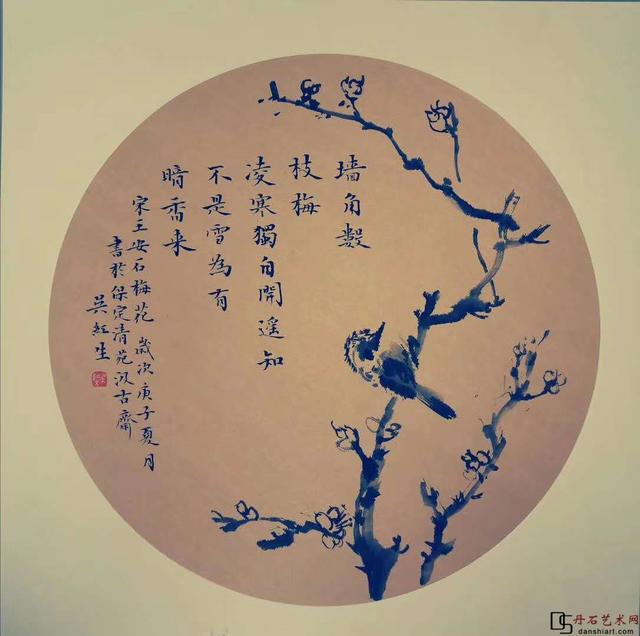 墙角數
枝梅
凌寒獨自開遥知
不是雪為有
暗香来
宋王安石梅花 歲次庚子夏月
書於保定清苑汲古齋
吴红生
丹石艺术网
danshiart.com